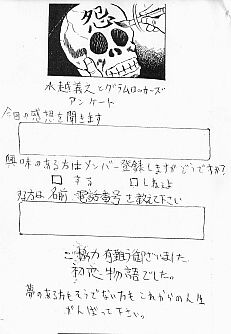 怨
水越義之とグラムロッカーズ
アンケート
今回の感想を聞きます
興味のある方はメンバー登録しますがどうですか?
□する □しねぇよ
名前 電話番号を教えて下さい
ご協力有難う御座いました
物語でした。
夢のある方もそうでない方もこれからの人生
がんばって下さい。